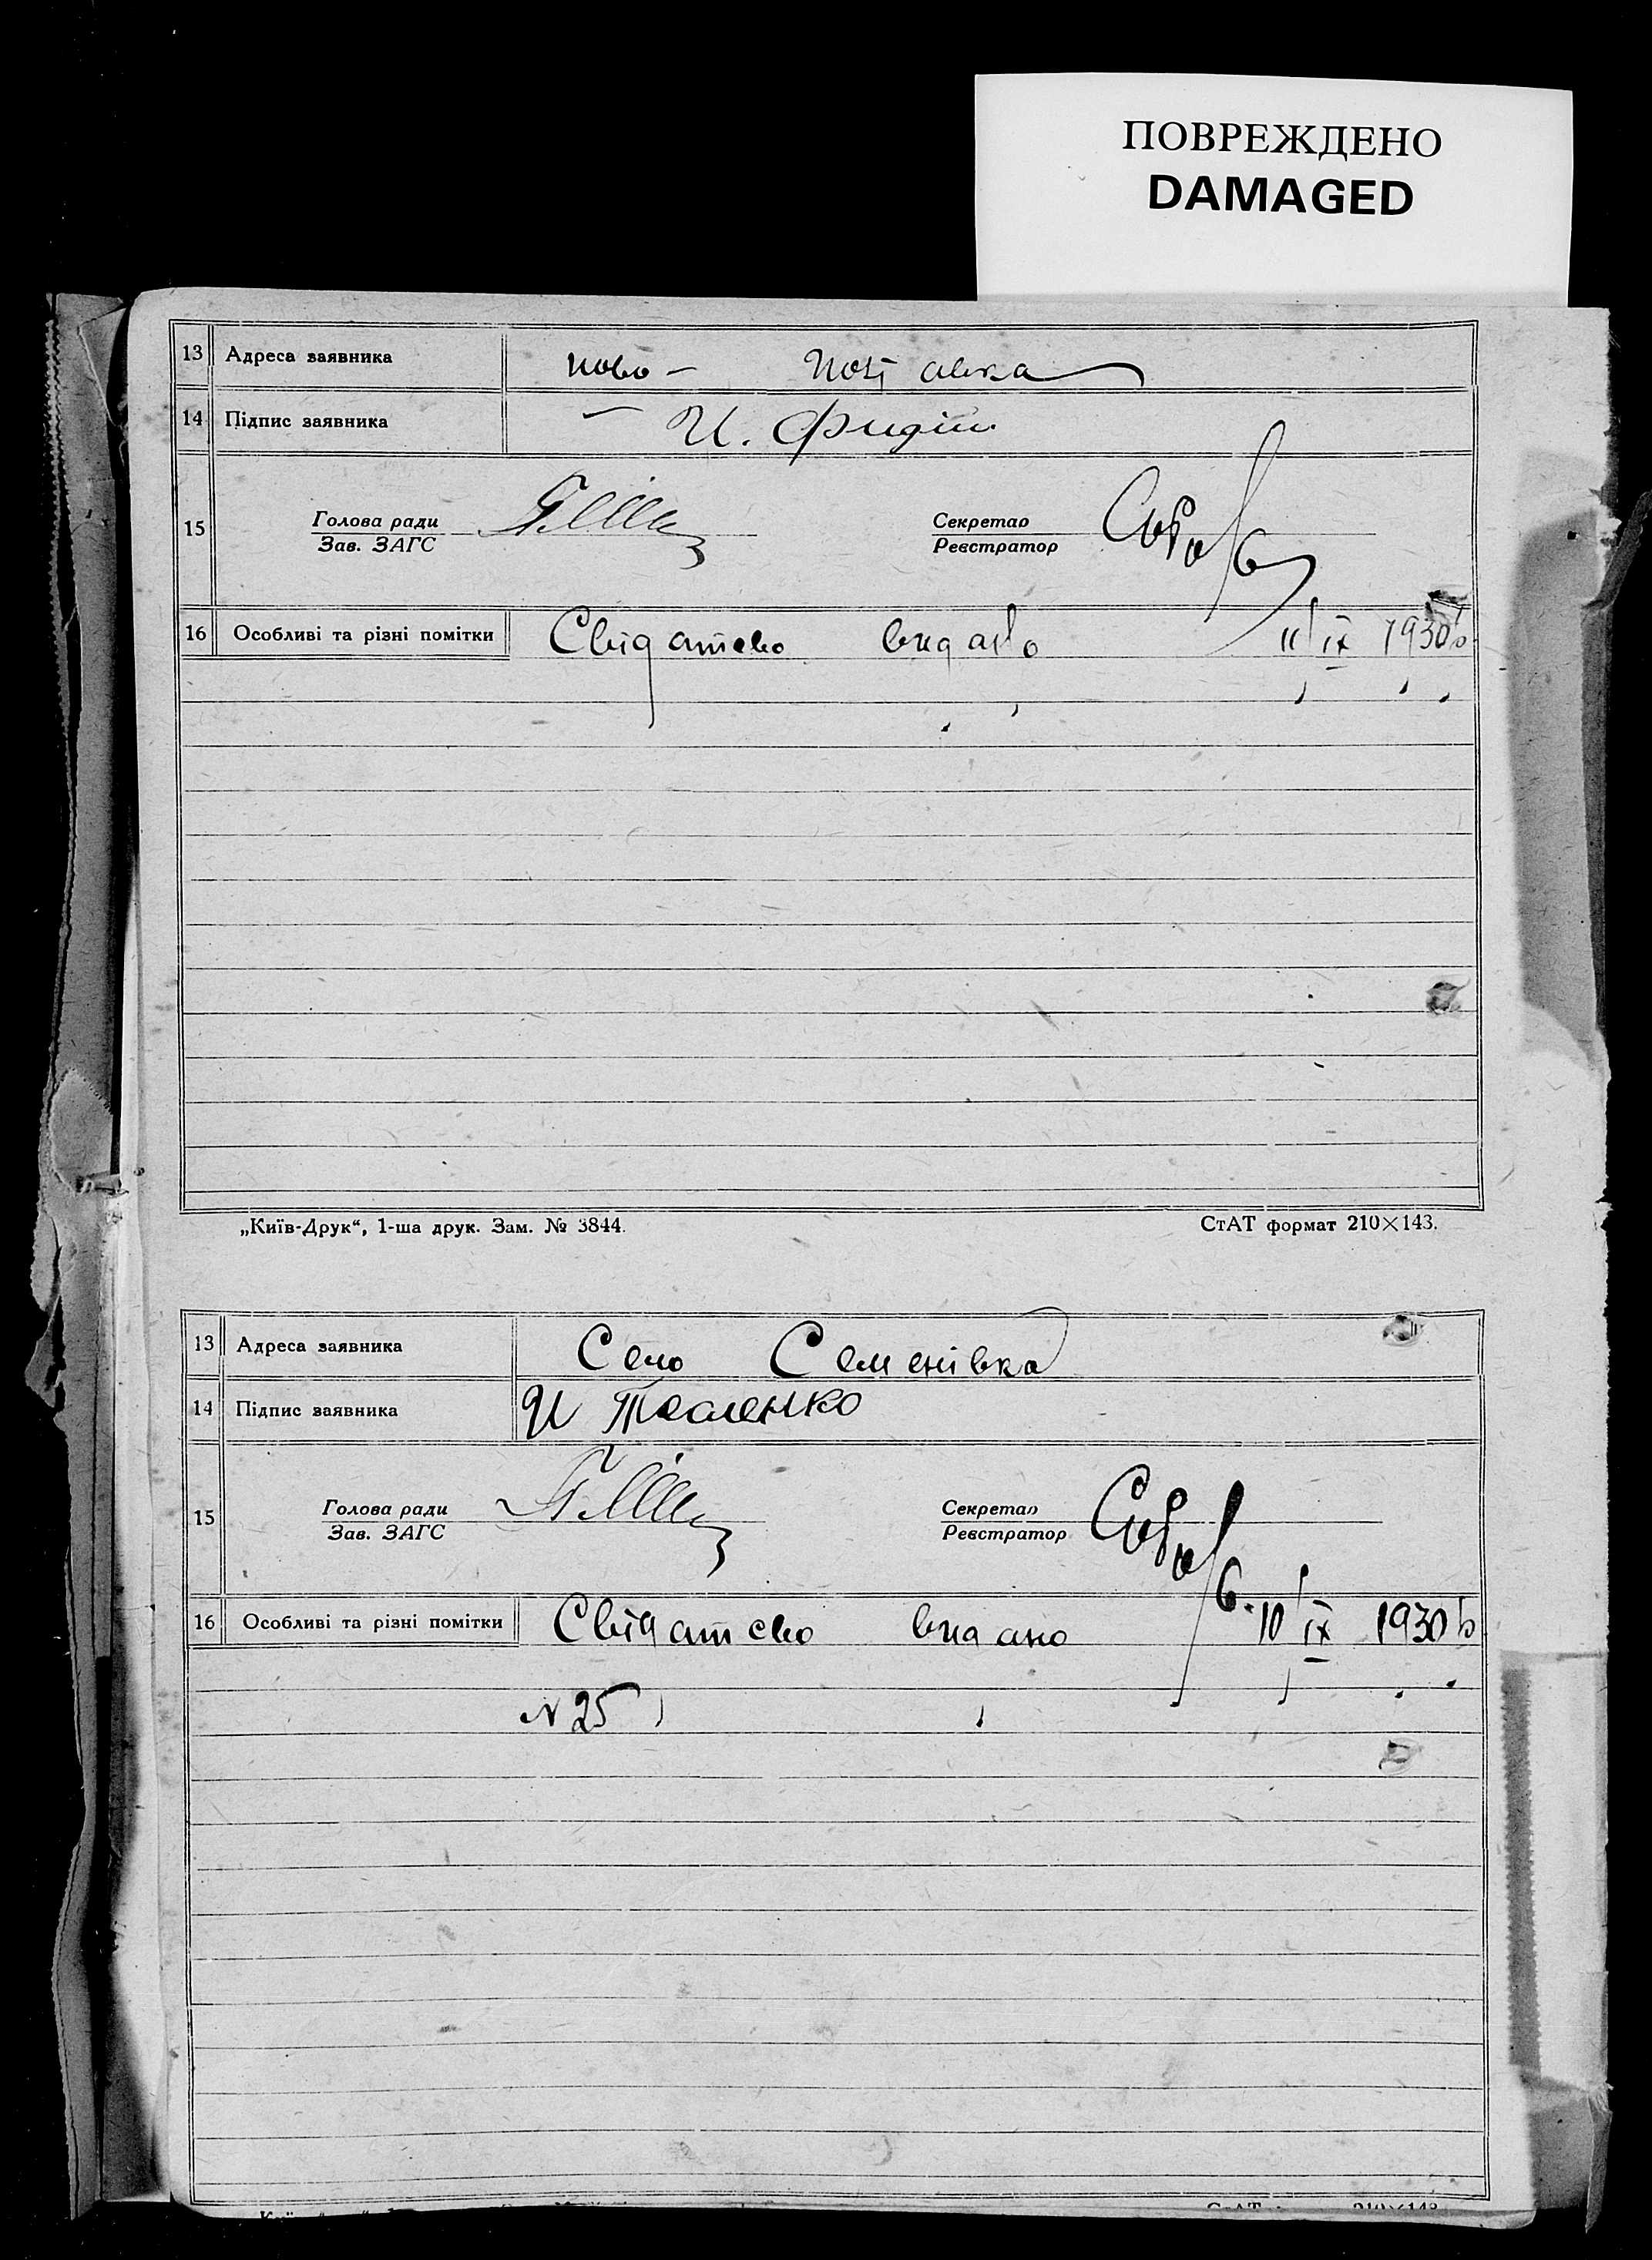 ПОВРЕЖДЕНО
DAMAGED
13 Адреса заявника ново –
14 Підпис заявника И.
15 Голова ради Секретар
Зав. ЗАГС Реєстратор
16 Особливі та різні помітки Свідатсво видано 11/IX 1930 р
„Київ-Друк“, 1-ша друк. Зам. № 3844. СтАТ формат 210×143.
13 Адреса заявника Село Семенівка
14 Підпис заявника И
15 Голова ради Секретар
Зав. ЗАГС Реєстратор
16 Особливі та різні помітки Свідатсво видано 10/IX 1930 р
N 25